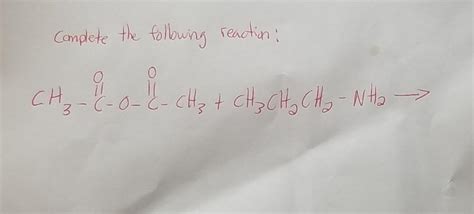 Complete the following reaction:
O O
|| ||
CH₃-C-O-C-CH₃ + CH₃CH₂CH₂-NH₂ →